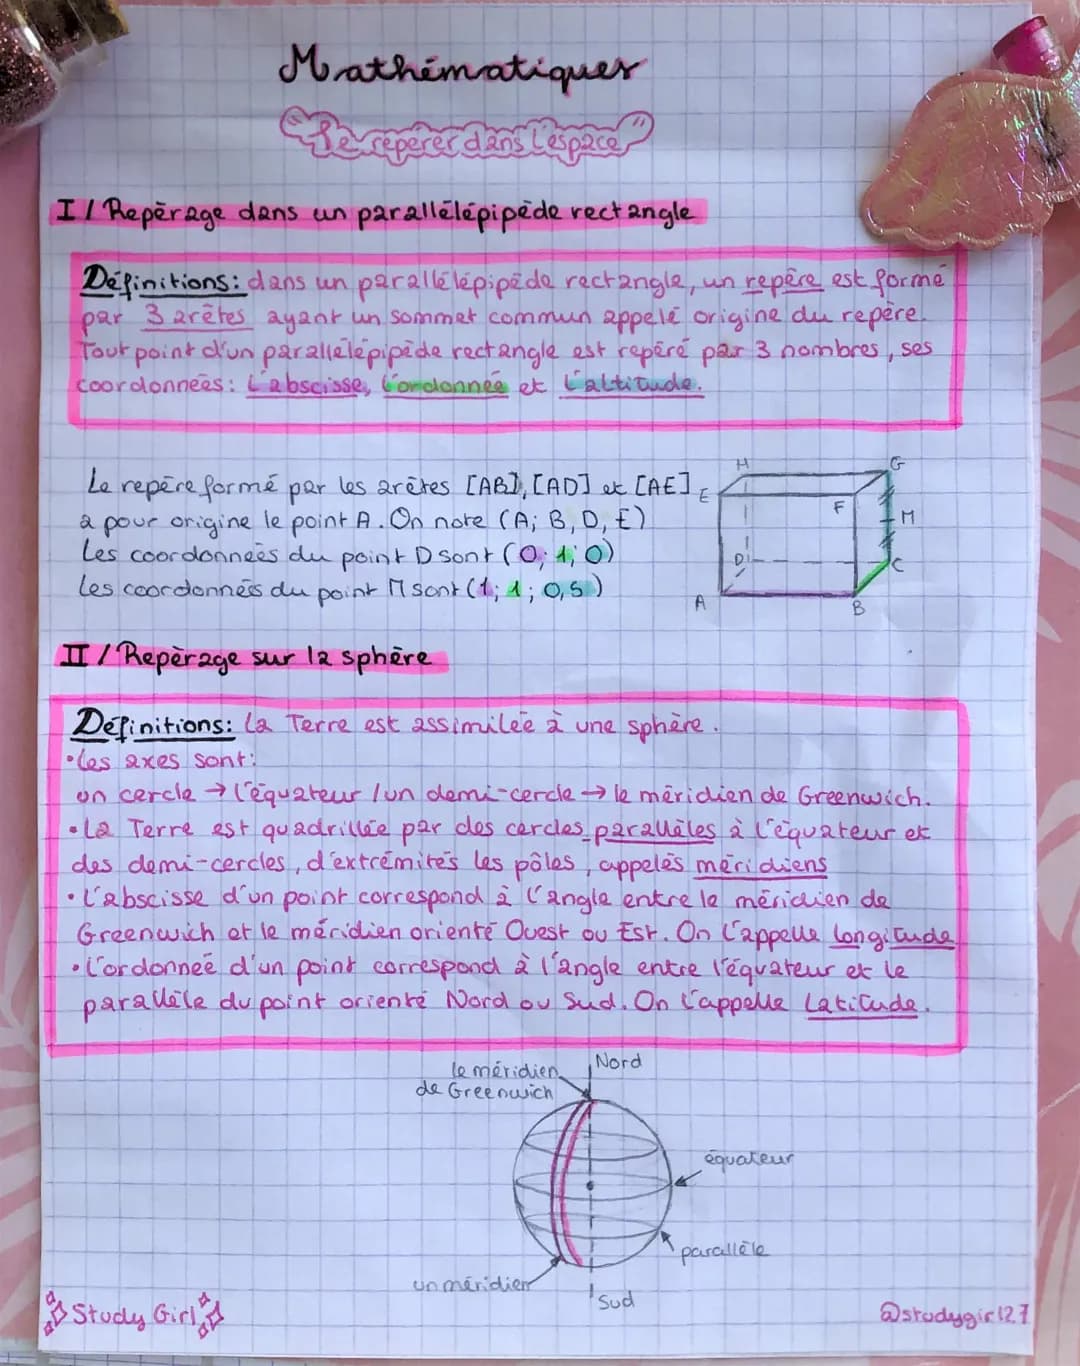 Mathématiques
"Se repérer dans l'espace"
I / Repérage dans un parallélépipède rectangle
Définitions: dans un parallélépipède rectangle, un repère est formé
par 3 arêtes ayant un sommet commun appelé origine du repère.
Tout point d'un parallélépipède rectangle est repéré par 3 nombres, ses
coordonnées: L'abscisse, l'ordonnée et L'altitude.
Le repère formé par les arêtes [AB], [AD] et [AE]
a pour origine le point A. On note (A; B, D, E)
Les coordonnées du point D sont (0; 1; 0)
Les coordonnées du point M sont (1; 1; 0,5)
H
G
E
F
M
D
C
A
B
II / Repérage sur la sphère
Définitions: La Terre est assimilée à une sphère.
•les axes sont:
un cercle → l'équateur / un demi-cercle → le méridien de Greenwich.
•La Terre est quadrillée par des cercles parallèles à l'équateur et
des demi-cercles, d'extrémités les pôles, appelés méridiens
•L'abscisse d'un point correspond à l'angle entre le méridien de
Greenwich et le méridien orienté Ouest ou Est. On l'appelle Longitude
•L'ordonnée d'un point correspond à l'angle entre l'équateur et le
parallèle du point orienté Nord ou Sud. On l'appelle Latitude.
le méridien
de Greenwich
Nord
équateur
parallèle
un méridien
Sud
Study Girl
@studygirl27